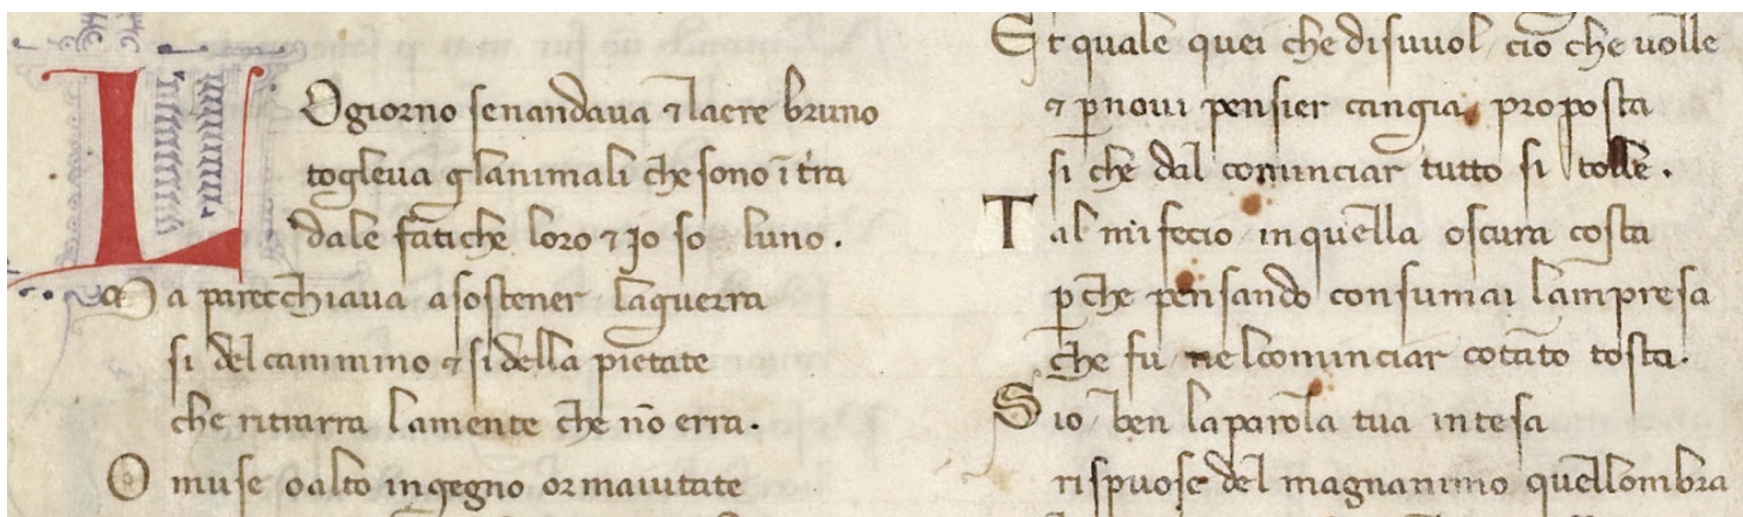 LO giorno senandaua ⁊ laere bruno
togleua glanimali che sono ī tr̄a
dale fatiche loro ⁊ io so luno.
M a parecchiaua asostener laguerra
si del cammino ⁊ sidella pietate
che ritrarra lamente che nō erra.
O muse oalto ingegno or maiutate
Et quale quei che disuuol cio che uolle
⁊ ꝑ noui pensier cangia proposta
si che dal cominciar tutto si tolle.
T al mi fecio inquella oscura costa
ꝑche pensando consumai lampresa
che fu nelcominciar cotāto tosta.
S io ben laparola tua intesa
rispuose del magnanimo quellombra